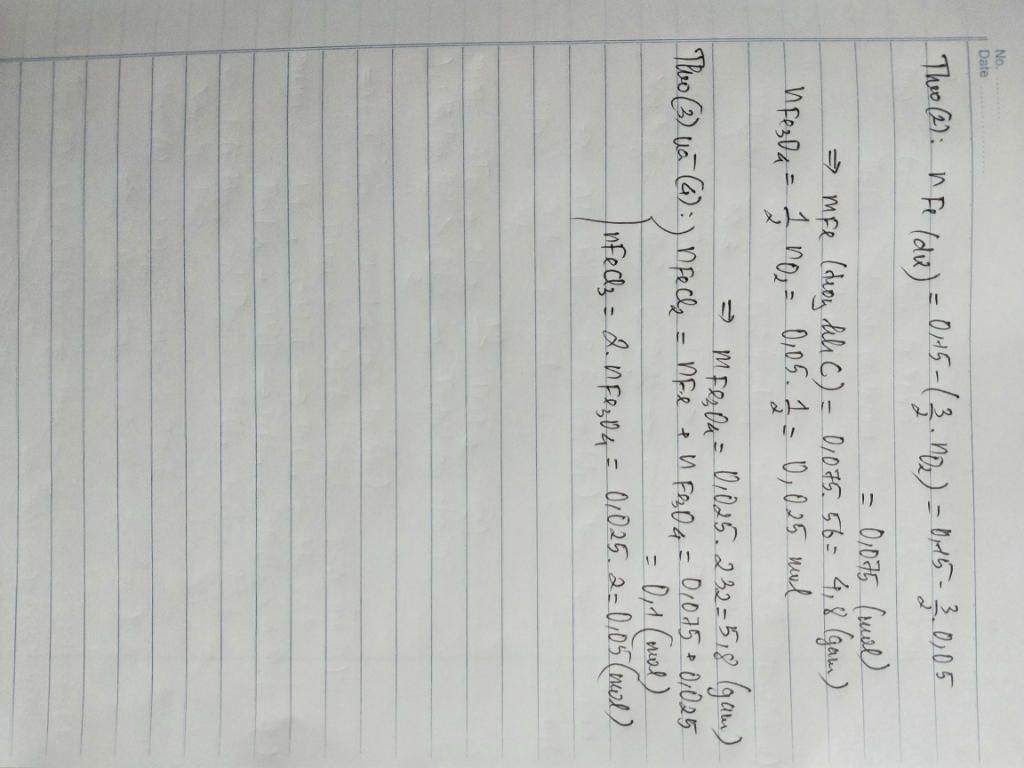 No.
Date
Theo (2): nFe (dư) = 0,15 - (3/2 . nO2) = 0,15 - 3/2 . 0,05
= 0,075 (mol)
⇒ mFe (trong hh C) = 0,075. 56 = 4,8 (gam)
nFe3O4 = 1/2 nO2 = 0,05. 1/2 = 0,025 mol
⇒ mFe3O4 = 0,025. 232 = 5,8 (gam)
Theo (3) và (4): nFeCl2 = nFe + nFe3O4 = 0,075 + 0,025
= 0,1 (mol)
nFeCl3 = 2. nFe3O4 = 0,025. 2 = 0,05 (mol)